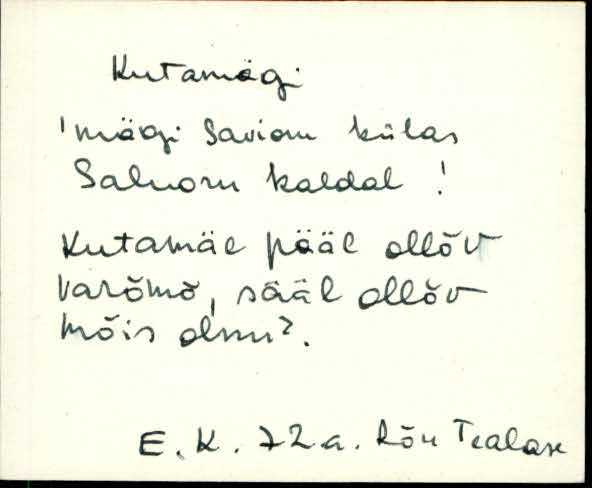 Kutamägi
'mägi Savioru külas
Saluoru kaldal!
Kutamäe pääl ollõv
varõmõ, sääl ollõv
mõis olnu?.
E. K. 72 a. Rõu Tealase